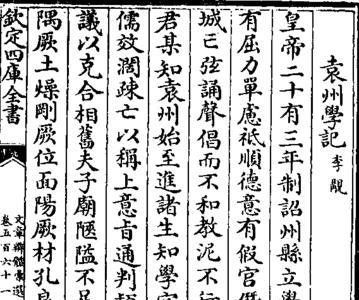 袁州學記 李覯
皇帝二十有三年制詔州縣立學
有屈力單慮祗順德意有假官
城亡弦誦聲倡而不和教泥不
君某知袁州始至進諸生知學
儒效濶疎亡以稱上意㫖通判
議以克合相舊夫子廟陿隘不
隅厥土燥剛厥位面陽厥材孔
欽定四庫全書
文章辨體彙選
卷五百六十一